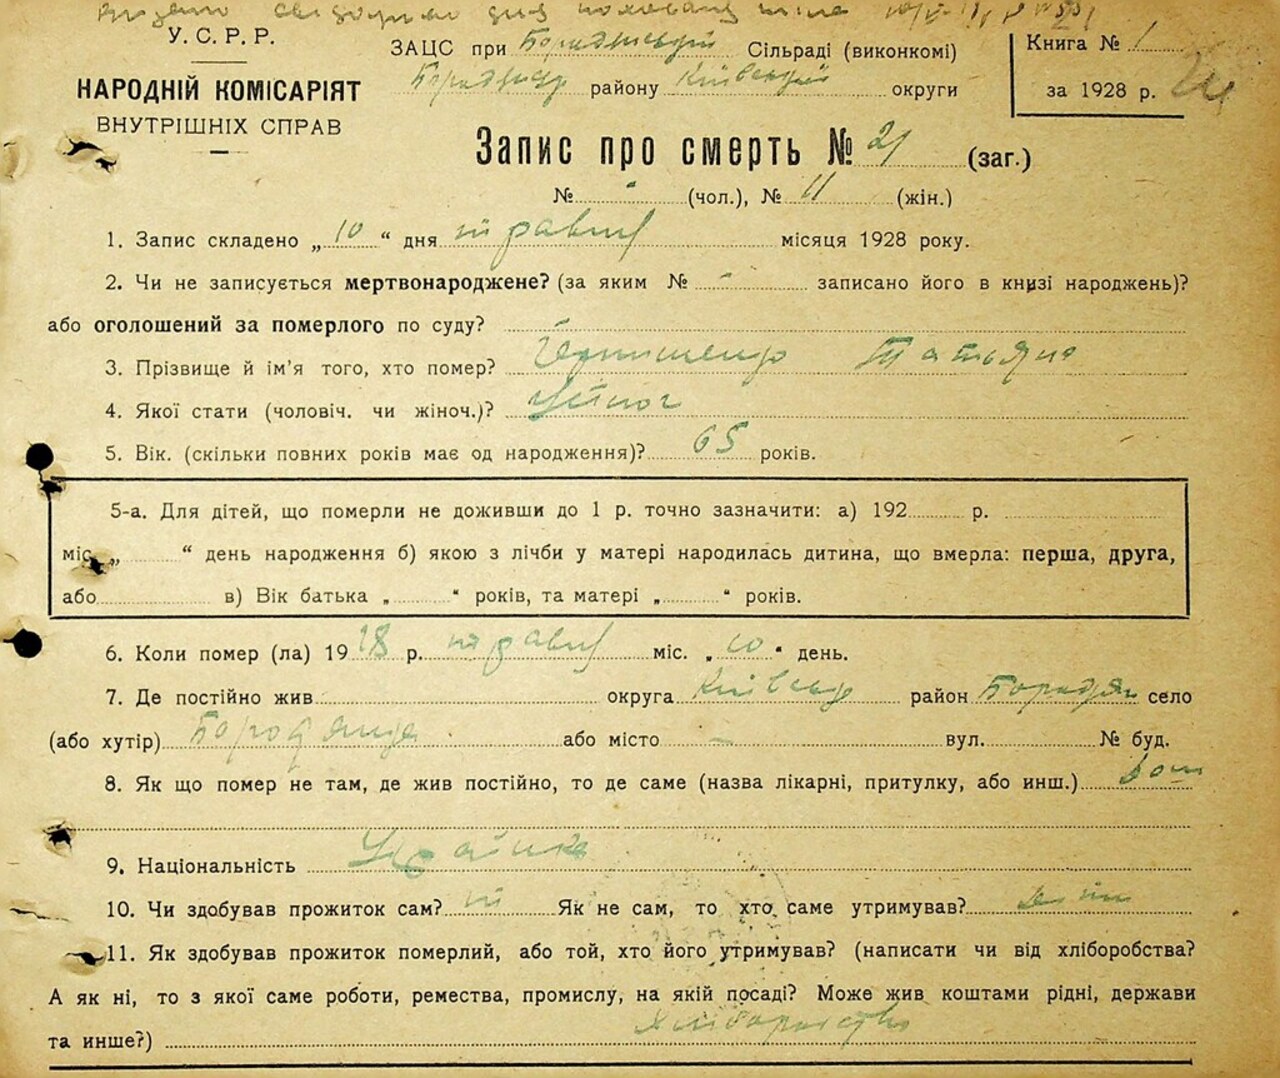 У. С. Р. Р.
НАРОДНІЙ КОМІСАРІЯТ
ВНУТРІШНІХ СПРАВ
ЗАЦС при Бородянській Сільраді (виконкомі)
району Київської округи
Книга № 1
за 1928 р.
Запис про смерть № 21 (заг.)
№ - (чол.), № 11 (жін.)
1. Запис складено „10“ дня травня місяця 1928 року.
2. Чи не записується мертвонароджене? (за яким № - записано його в книзі народжень)?
або оголошений за померлого по суду?
3. Прізвище й ім'я того, хто помер? Татьяна
4. Якої стати (чоловіч. чи жіноч.)? жіноч
5. Вік. (скільки повних років має од народження)? 65 років.
5-а. Для дітей, що померли не доживши до 1 р. точно зазначити: а) 192 р.
міс. „ “ день народження б) якою з лічби у матері народилась дитина, що вмерла: перша, друга,
або в) Вік батька „ “ років, та матері „ “ років.
6. Коли помер (ла) 1928 р. травня міс. „10“ день.
7. Де постійно жив округа Київська район Бородян село
(або хутір) Бородянка або місто - вул. № буд.
8. Як що помер не там, де жив постійно, то де саме (назва лікарні, притулку, або инш.)
9. Національність Українка
10. Чи здобував прожиток сам? ні Як не сам, то хто саме утримував? діти
11. Як здобував прожиток померлий, або той, хто його утримував? (написати чи від хліборобства?
А як ні, то з якої саме роботи, ремества, промислу, на якій посаді? Може жив коштами рідні, держави
та инше?) хліборобство